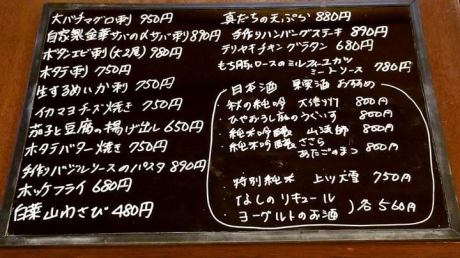 大バチマグロ刺 950円
自家製金華サバの〆サバ刺 890円
ボタンエビ刺(大2尾) 980円
ホタテ刺 750円
生するめいか刺 750円
イカマヨチーズ焼き 750円
茄子と豆腐の揚げ出し 650円
ホタテバター焼き 750円
手作りバジルソースのパスタ 890円
ホッケフライ 680円
白菜山わさび 480円
真だちの天ぷら 880円
手作りハンバーグステーキ 890円
テリヤキチキングラタン 680円
もち豚ロースのミルフィーユカツ
ミートソース 780円
日本酒 果実酒 おすすめ
・秋の純吟 大信州 800円
・ひやおろし 秋のうぐいす 800円
・純米吟醸 山法師 800円
・純米吟醸 ささら
あたごのまつ 800円
・特別純米 上川大雪 750円
・なしのリキュール
・ヨーグルトのお酒 )各560円